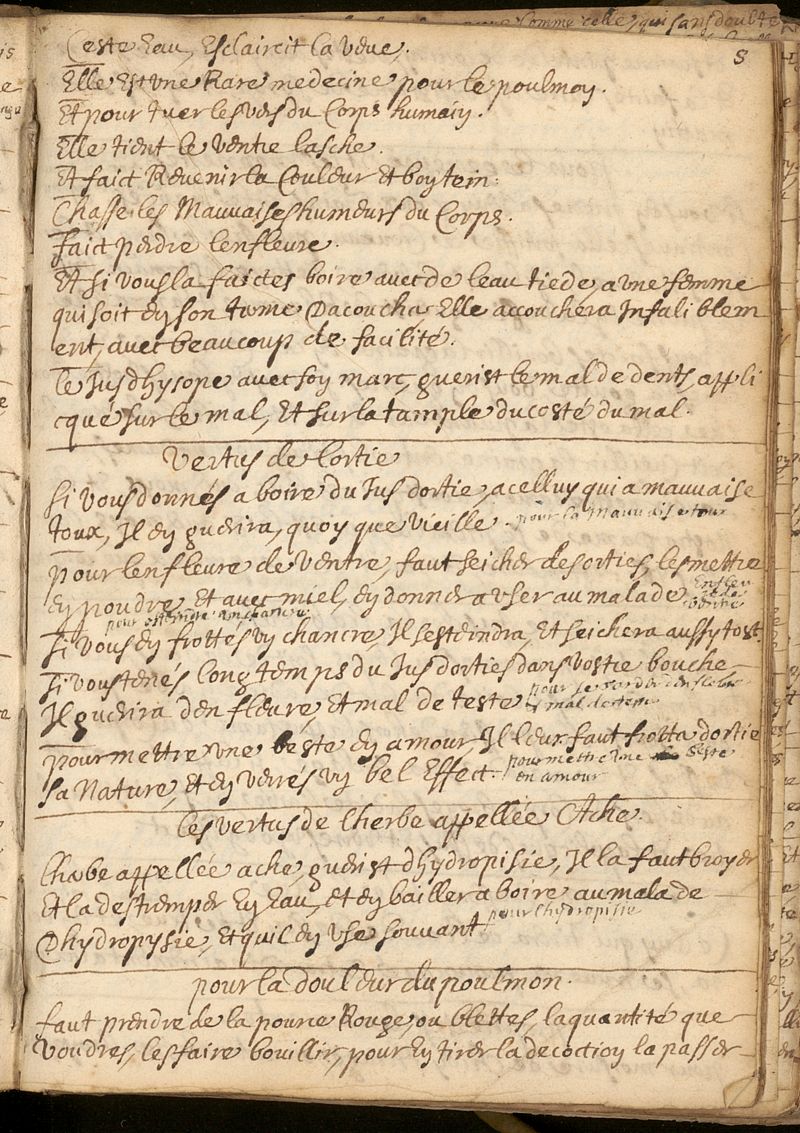 8
Ceste Eau, Esclaircit la veue.
Elle Est vne Rare medecine pour le poulmoy.
Et pour tuer les vers du Corps humain.
Elle tient le ventre lasche.
Et faict Revenir la Couleur Et boy tein.
Chasse les Mauvaises humeurs du Corps.
faict perdre lenfleure.
Et si vous la faictes boire avec de leau tiede, a vne femme
qui soit Ey son terme Dacoucher Elle accouchera Infaliblem
ent, avec beaucoup de facilité.
le Jus dhysope avec soy marc, guerist le mal de dents, appli
cqué sur le mal, Et sur la tample du costé du mal.
vertus de lortie
Si vous donnés a boire du Jus dortie, a celluy qui a mauvaise
toux, Il Ey guerira, quoy que vieille. pour la Mauvaise toux
pour lenfleure de ventre, faut seicher des orties, les mettre
Ey poudre, Et avec miel, Ey donner a vser au malade Enfleu
re de
ventre
pour esteindre un chancre
Si vous Ey frottes vy chancre, Il sesteindra, Et seichera aussy tost.
Si vous tenés long temps du Jus dorties dans vostre bouche
Il guerira denfleure, Et mal de teste pour
mal de teste
pour mettre vne beste Ey amour, Il leur faut frotta dortie
sa Nature, Et Ey verrés vy bel Effect. pour mettre vne beste
en amour
les vertus de lherbe appellée Ache.
lherbe appellée ache, guerist dhydropisie, Il la faut broyer
Et la destremper Ey Eau, et Ey bailler a boire au malade
Dhydropysie, Et quil Ey vse souvant pour lhydropisie
pour la douleur du poulmon.
faut prendre de la pouree Rouge, ou blettes, la quantité que
voudres, les faire bouillir, pour Ey tirer la decoctioy la passer